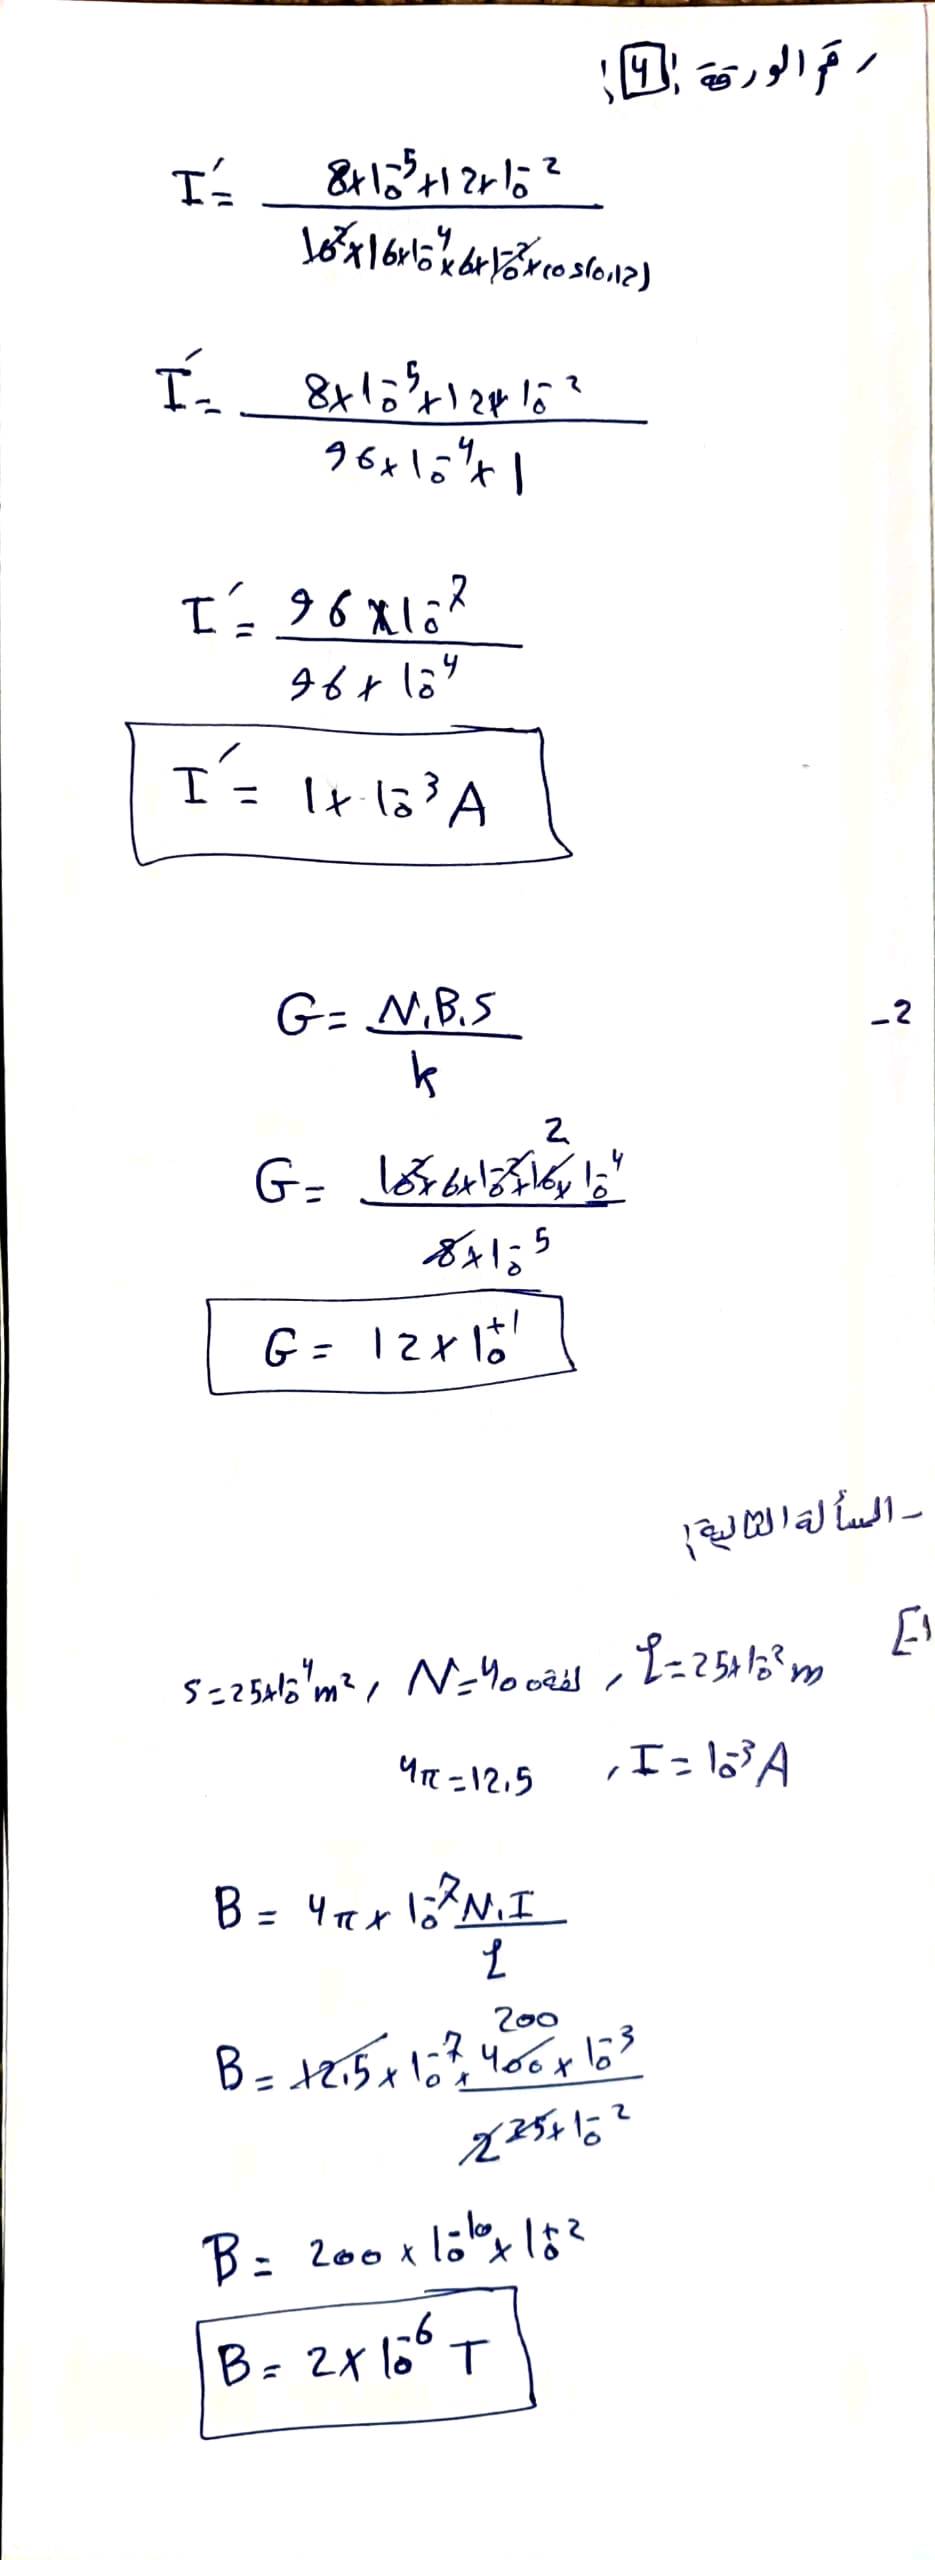 رقم الورقة: 4:
I′ = (8×10⁻⁵ × 12×10⁻²) / (10² × 16×10⁻⁴ × 6×10⁻² × cos(0,12))
I′ = (8×10⁻⁵ × 12×10⁻²) / (96×10⁻⁴ × 1)
I′ = (96×10⁻⁷) / (96×10⁻⁴)
I′ = 1×10⁻³ A
2-
G = N.B.S / k
G = (10² × 6×10⁻² × 16 × 10⁻⁴) / (8×10⁻⁵) 2
G = 12×10⁺¹
- المسألة الثانية:
S = 25×10⁻⁴ m² , N = 400 لفة , ℓ = 25×10⁻² m
4π = 12,5 , I = 10⁻³ A
B = 4π × 10⁻⁷ N.I / ℓ
B = 12,5 × 10⁻⁷ × (400 × 10⁻³) / (2 25×10⁻²) 200
B = 200 × 10⁻¹⁰ × 10⁺²
B = 2×10⁻⁶ T